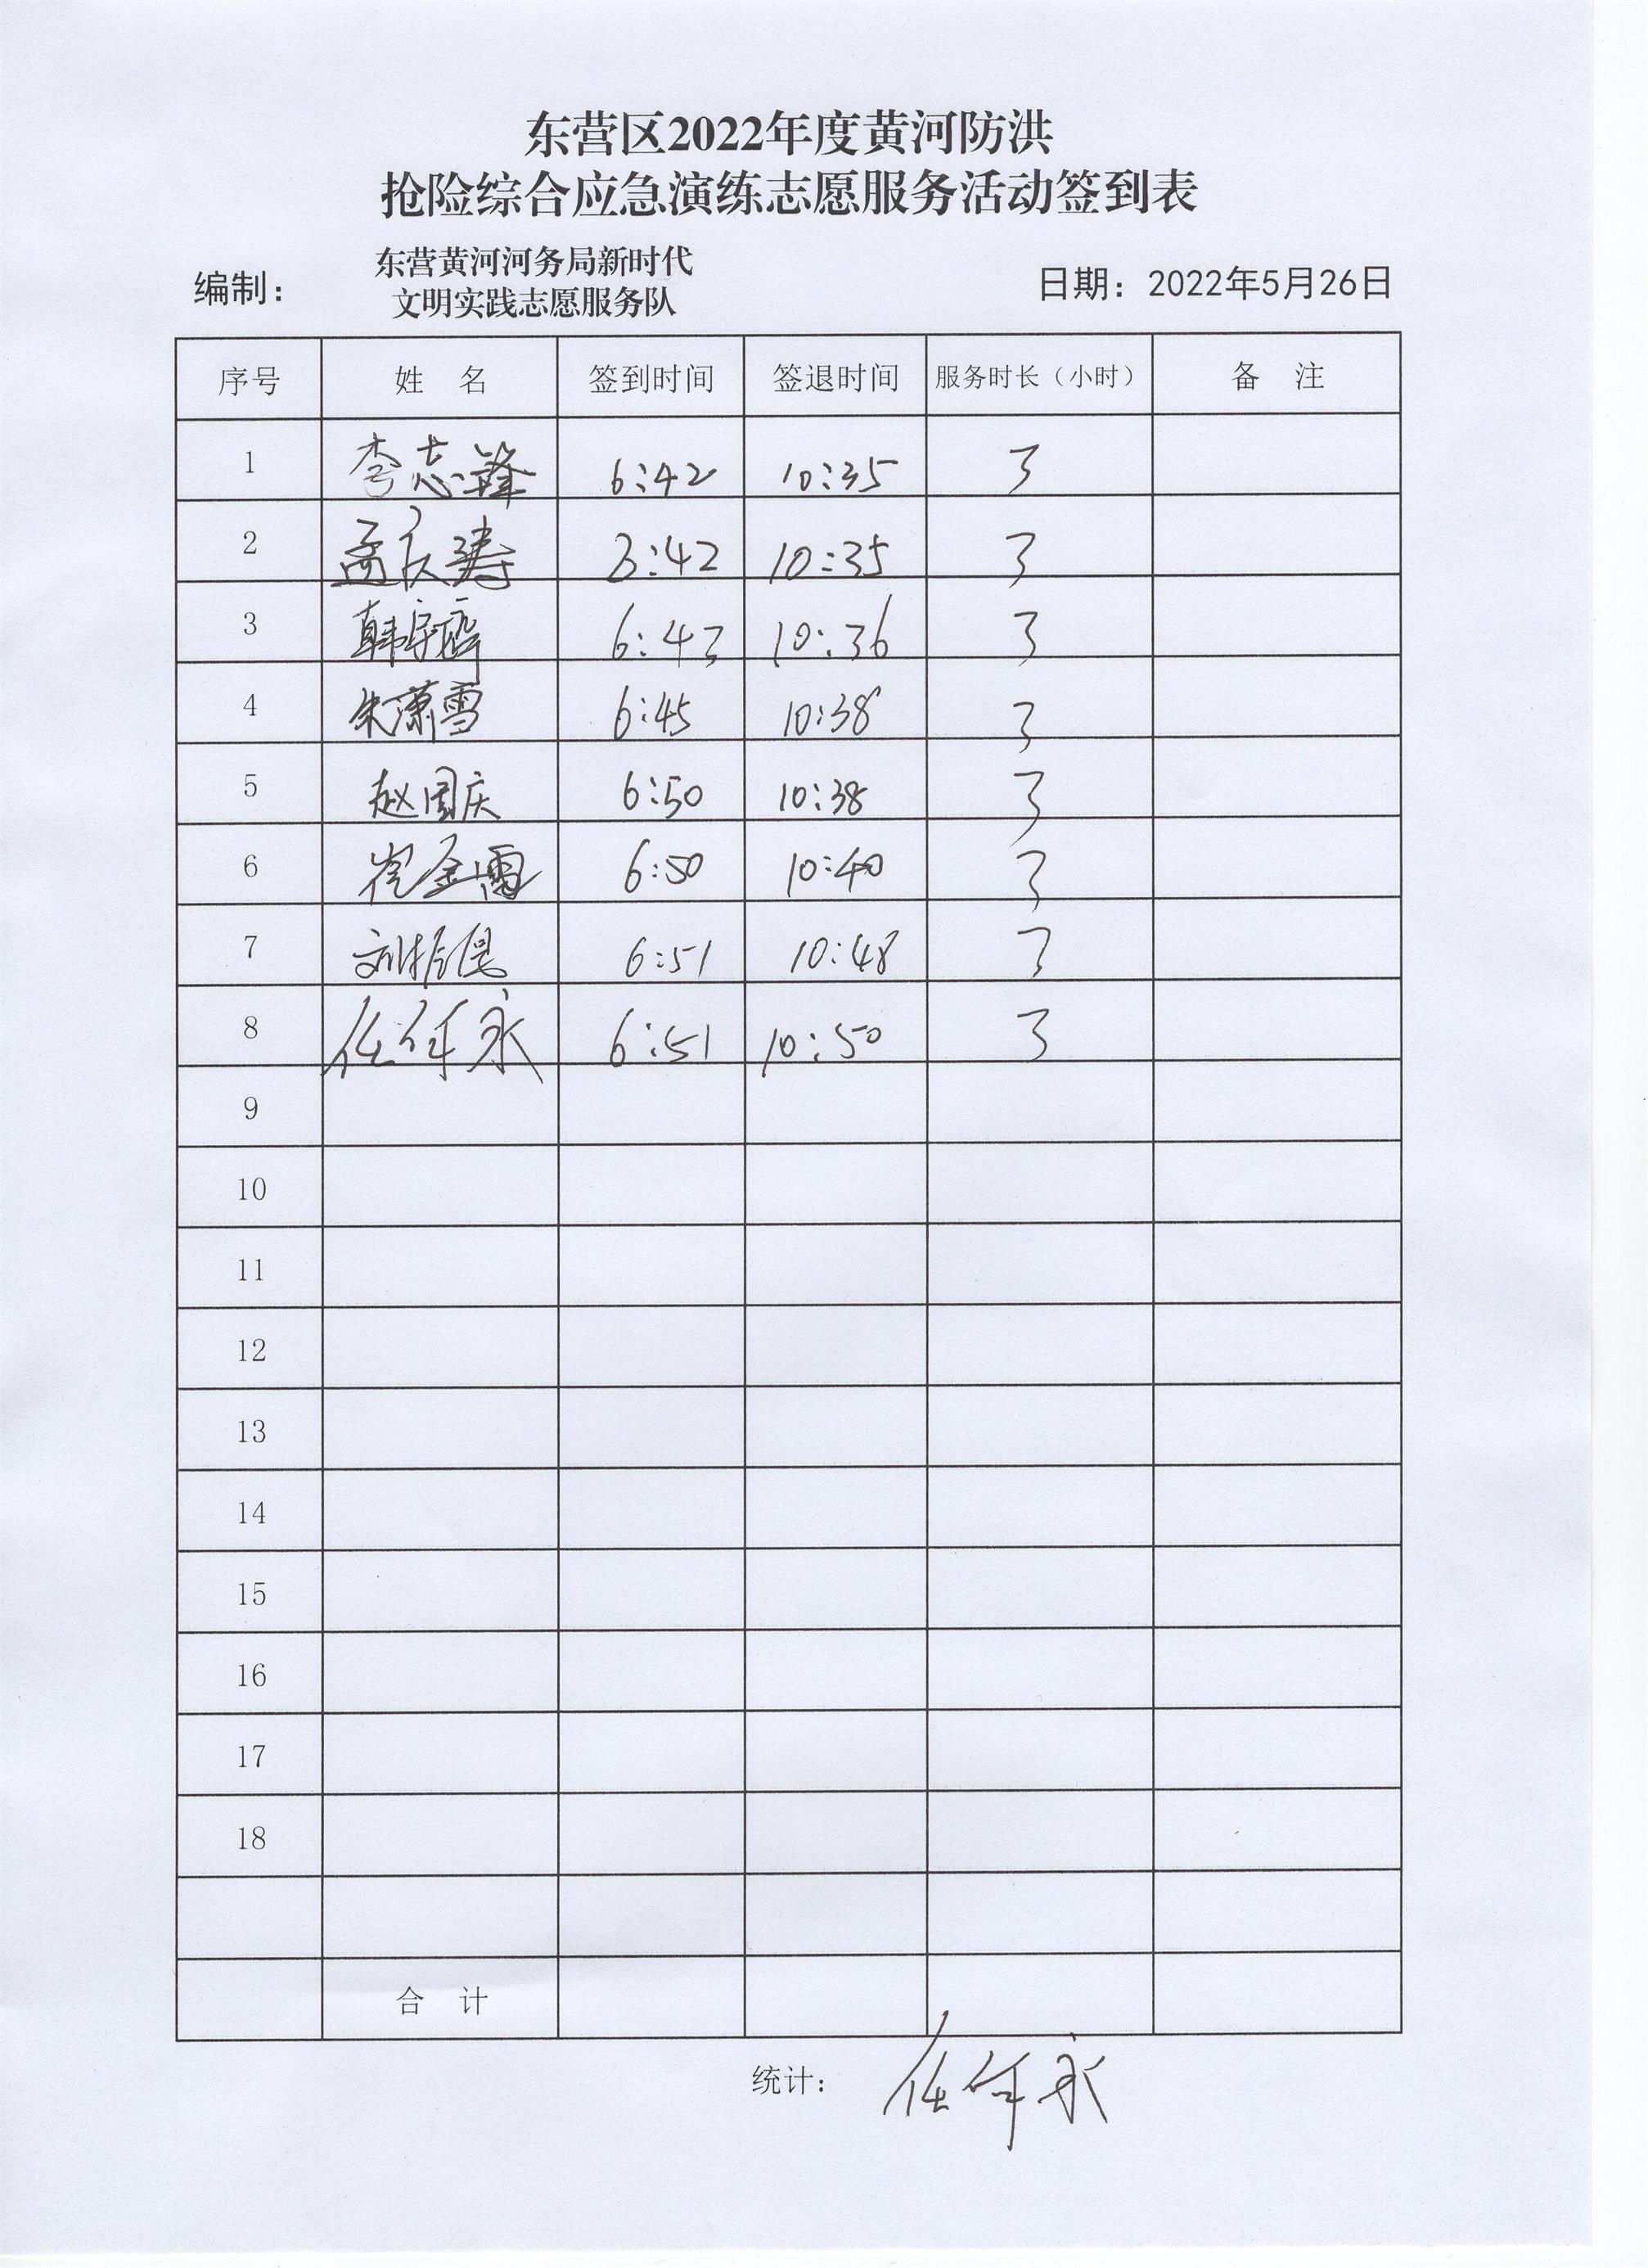 东营区2022年度黄河防洪
抢险综合应急演练志愿服务活动签到表
编制： 东营黄河河务局新时代 日期：2022年5月26日
文明实践志愿服务队
序号 姓 名 签到时间 签退时间 服务时长（小时） 备 注
1 李志锋 6:42 10:35 3
2 孟庆涛 3:42 10:35 3
3 韩宇 6:43 10:36 3
4 朱潇雪 6:45 10:38 3
5 赵国庆 6:50 10:38 3
6 崔金雷 6:50 10:40 3
7 刘振 6:51 10:48 3
8 任 永 6:51 10:50 3
9
10
11
12
13
14
15
16
17
18
合 计
统计： 任 永